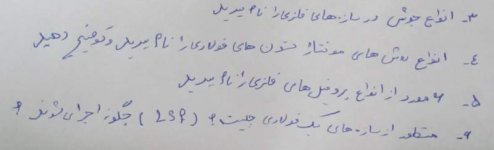 ۳- انواع جوش در سازه های فلزی را نام ببرید
٤- انواع روش های مونتاژ ستون های فولادی را نام ببرید و توضیح دهید
۵- ۶ مورد از انواع پروفیل های فلزی را نام ببرید
۶- منظور از سازه های سبک فولادی چیست؟ (LSF) چگونه اجرا می شوند؟